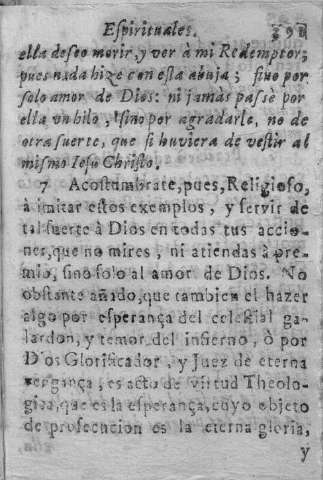 Espirituales. 391
ella deseo morir, y ver à mi Redemptor;
pues nada hize con esta abuja; sino por
solo amor de Dios: ni jamàs passè por
ella vn hilo, sino por agradarle, no de
otra suerte, que si huviera de vestir al
mismo Iesu Christo.
7 Acostumbrate, pues, Religioso,
à imitar estos exemplos, y servir de
tal suerte à Dios en todas tus accio-
nes, que no mires, ni atiendas à pre-
mio, sino solo al amor de Dios. No
obstante añado, que tambien el hazer
algo por esperança del celestial ga-
lardon, y temor del infierno, ò por
Dios Glorificador, y Juez de eterna
vengança, es acto de virtud Theolo-
gica, que es la esperança, cuyo objeto
de prosecucion es la eterna gloria,
y